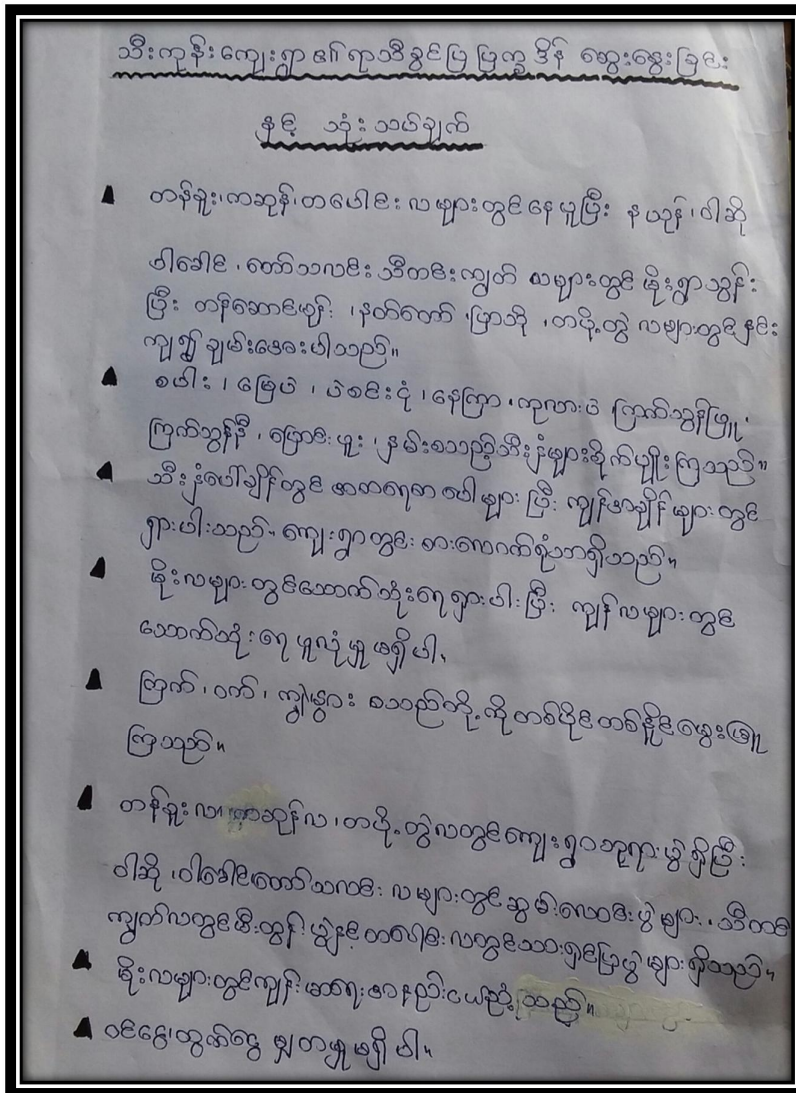 သီးကုန်းကျေးရွာ၏ရာသီခွင်ပြပြက္ခဒိန် ဆွေးနွေးခြင်း
နှင့် သုံးသပ်ချက်
တန်ခူး၊ကဆုန်၊တပေါင်းလများတွင်နေပူပြီး နယုန်၊ဝါဆို
ဝါခေါင်၊တော်သလင်းသီတင်းကျွတ် လများတွင်မိုးရွာသွန်း
ပြီး တန်ဆောင်မုန်း၊နတ်တော်၊ပြာသို၊တပို့တွဲ လများတွင်နှင်း
ကျ၍ချမ်းအေးပါသည်။
စပါး၊မြေပဲ၊ပဲစင်းငုံ၊နေကြာ၊ကုလားပဲ၊ကြက်သွန်ဖြူ၊
ကြက်သွန်နီ၊ပြောင်းဖူး၊နှမ်းစသည့်သီးနှံများစိုက်ပျိုးကြသည်။
သီးနှံပေါ်ချိန်တွင် စားရေစာပေါများပြီး ကျန်အချိန်များတွင်
ရှားပါးသည်။ ကျေးရွာတွင်းစားလောက်ရုံသာရှိသည်။
မိုးလများတွင်သောက်သုံးရေရှားပါးပြီး ကျန်လများတွင်
သောက်သုံးရေပူလုံမှုမရှိပါ။
ကြက်၊ဝက်၊ကျွဲနွား စသည်တို့ကိုတစ်ပိုင်တစ်နိုင်မွေးမြူ
ကြသည်။
တန်ခူးလ၊ကဆုန်လ၊တပို့တွဲလတွင်ကျေးရွာဘုရားပွဲရှိပြီး
ဝါဆို၊ဝါခေါင်၊တော်သလင်း လများတွင်ဆွမ်းလောင်းပွဲများ၊သီတင်း
ကျွတ်လတွင်မီးထွန်းပွဲနှင့်တပေါင်းလတွင်သားရှင်ပြုပွဲများရှိသည်။
မိုးလများတွင်ကျန်းမာရေးအနည်းငယ်ညံ့သည်။
ဝင်ငွေ၊ထွက်ငွေ မျှတမှုမရှိပါ။